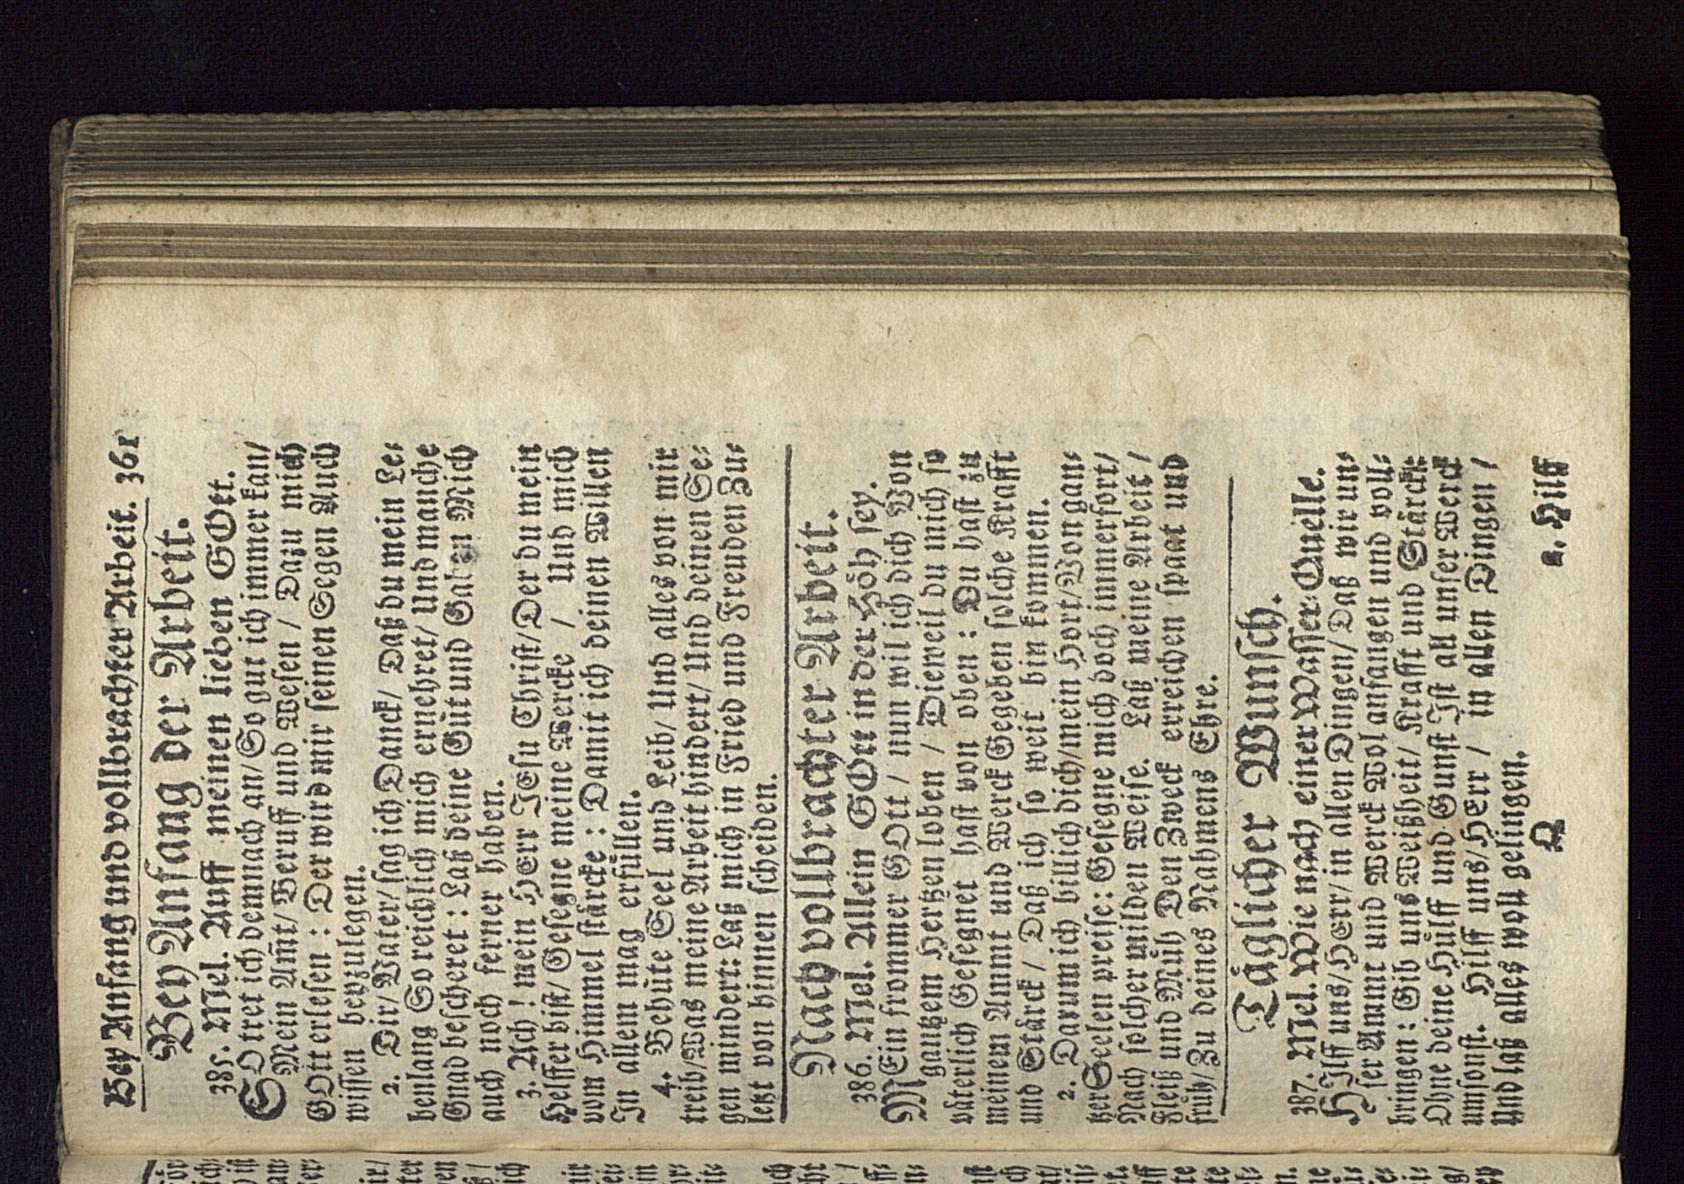 Bey Anfang und vollbrachter Arbeit. 361
Bey Anfang der Arbeit.
385. Mel. Auff meinen lieben GOtt.
SO tret ich demnach an/ So gut ich immer kan/
Mein Am̃t/ Beruff und Wesen / Dazu mich
GOtt erlesen : Der wird mir seinen Segen Auch
wissen beyzulegen.
2. Dir/ Vater/ sag ich Danck/ Daß du mein Le-
benlang So reichlich mich ernehret/ Und manche
Gnad bescheret : Laß deine Güt und Gaben Mich
auch noch ferner haben.
3. Ach ! mein HErr JEsu Christ/ Der du mein
Helffer bist/ Gesegne meine Wercke / Und mich
vom Himmel stärcke : Damit ich deinen Willen
In allem mag erfüllen.
4. Behüte Seel und Leib/ Und alles von mir
treib/ Was meine Arbeit hindert/ Und deinen Se-
gen mindert: Laß mich in Fried und Freuden Zu-
letzt von hinnen scheiden.
Nach vollbrachter Arbeit.
386. Mel. Allein GOtt in der Höh sey.
MEin frommer GOtt / nun wil ich dich Von
gantzem Hertzen loben / Dieweil du mich so
väterlich Gesegnet hast von oben : Du hast zu
meinem Ammt und Werck Gegeben solche Krafft
und Stärck / Daß ich so weit bin kommen.
2. Darum ich billich dich/ mein Hort/ Von gan-
tzer Seelen preise : Gesegne mich doch immerfort/
Nach solcher milden Weise. Laß meine Arbeit /
Fleiß und Müh Den Zweck erreichen spaat und
früh/ Zu deines Nahmens Ehre.
Täglicher Wunsch.
387. Mel. Wie nach einer Wasser-Quelle.
HIlff uns/ HErr/ in allen Dingen/ Daß wir un-
ser Ammt und Werck Wol anfangen und voll-
bringen : Gib uns Weißheit/ Krafft und Stärck:
Ohne deine Hülff und Gunst Ist all unser Werck
umsonst. Hilff uns/ HErr / in allen Dingen /
Und laß alles woll gelingen.
Q 2. Hilff